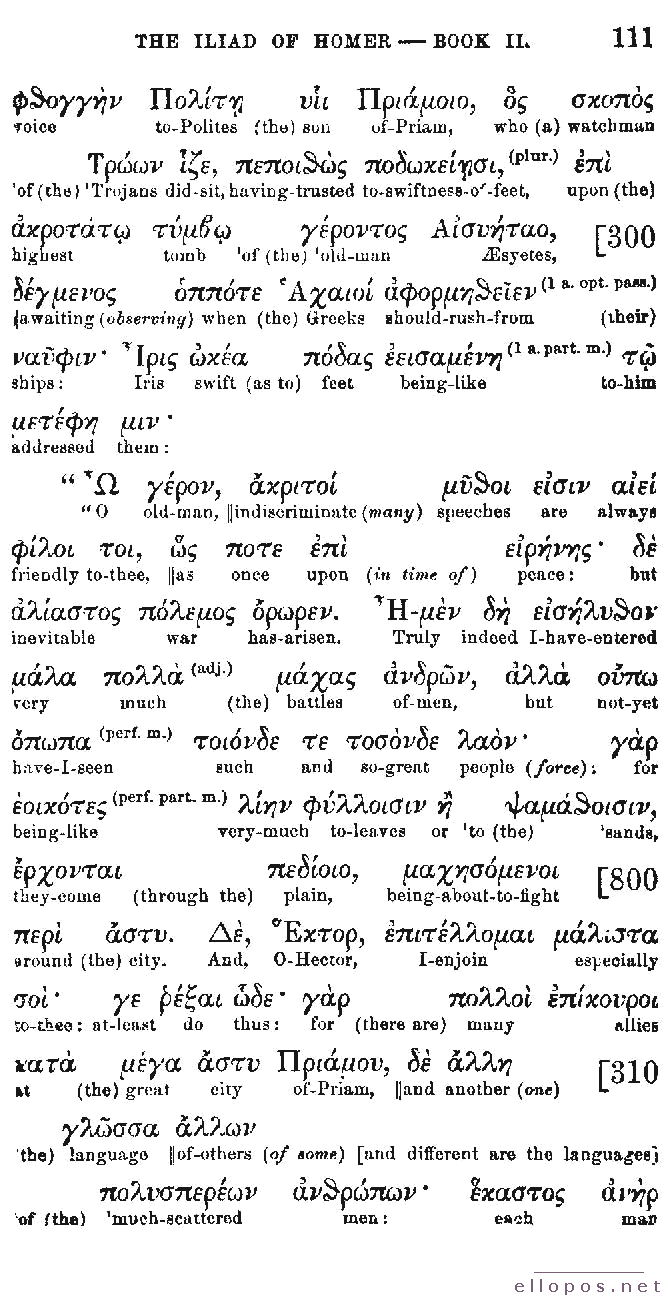 THE ILIAD OF HOMER — BOOK II. 111
φθογγὴν Πολίτῃ υἷι Πριάμοιο, ὃς σκοπὸς
voice to-Polites (the) son of-Priam, who (a) watchman
Τρώων ἷζε, πεποιθὼς ποδωκείῃσι, (plur.) ἐπὶ
'of (the) 'Trojans did-sit, having-trusted to-swiftness-of-feet, upon (the)
ἀκροτάτῳ τύμβῳ γέροντος Αἰσυήταο, [300
highest tomb 'of (the) 'old-man Æsyetes,
δέγμενος ὁππότε Ἀχαιοί ἀφορμηθεῖεν (1 a. opt. pass.)
‖awaiting (observing) when (the) Greeks should-rush-from (their)
ναῦφιν· Ἶρις ὠκέα πόδας ἐεισαμένη (1 a. part. m.) τῷ
ships: Iris swift (as to) feet being-like to-him
μετέφη μιν·
addressed them:
“Ὦ γέρον, ἄκριτοί μῦθοι εἰσιν αἰεί
“O old-man, ‖indiscriminate (many) speeches are always
φίλοι τοι, ὥς ποτε ἐπὶ εἰρήνης· δὲ
friendly to-thee, ‖as once upon (in time of) peace: but
ἀλίαστος πόλεμος ὄρωρεν. Ἦ-μὲν δὴ εἰσήλυθον
inevitable war has-arisen. Truly indeed I-have-entered
μάλα πολλὰ (adj.) μάχας ἀνδρῶν, ἀλλὰ οὔπω
very much (the) battles of-men, but not-yet
ὄπωπα (perf. m.) τοιόνδε τε τοσόνδε λαὸν· γὰρ
have-I-seen such and so-great people (force); for
ἐοικότες (perf. part. m.) λίην φύλλοισιν ἢ ψαμάθοισιν,
being-like very-much to-leaves or 'to (the) 'sands,
ἔρχονται πεδίοιο, μαχησόμενοι [800
they-come (through the) plain, being-about-to-fight
περὶ ἄστυ. Δὲ, Ἕκτορ, ἐπιτέλλομαι μάλιστα
around (the) city. And, O-Hector, I-enjoin especially
σοὶ· γε ῥέξαι ὧδε· γὰρ πολλοὶ ἐπίκουροι
to-thee: at-least do thus: for (there are) many allies
κατὰ μέγα ἄστυ Πριάμου, δὲ ἄλλη [310
at (the) great city of-Priam, ‖and another (one)
γλῶσσα ἄλλων
'the) language ‖of-others (of some) [and different are the languages]
πολυσπερέων ἀνθρώπων· ἕκαστος ἀνήρ
'of (the) 'much-scattered men: each man
ellopos.net